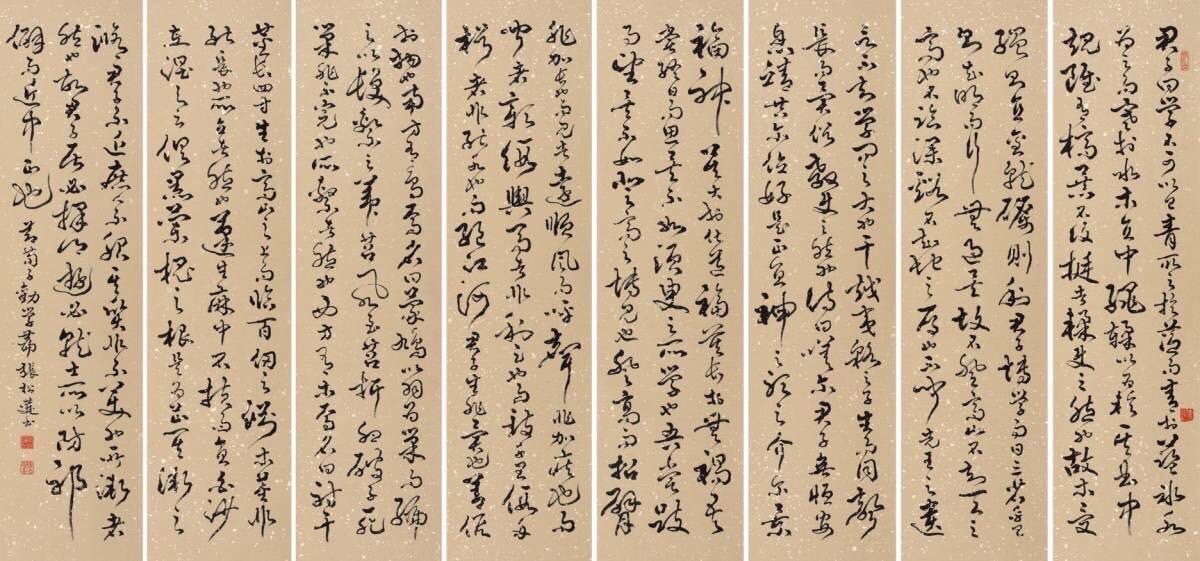 君子曰學不可以已青取之於藍而青於藍冰水
為之而寒於水木直中繩輮以為輪其曲中
規雖有槁暴不復挺者輮使之然也故木受
繩則直金就礪則利君子博學而日三省乎己
則知明而行無過矣故不登高山不知天之
高也不臨深谿不知地之厚也不聞先王之遺
言不知學問之大也干越夷貉之子生而同聲
長而異俗教使之然也詩曰嗟爾君子無恆安
息靖共爾位好是正直神之聽之介爾景
福神莫大於化道福莫長於無禍吾
嘗終日而思矣不如須臾之所學也吾嘗跂
而望矣不如登高之博見也登高而招臂
非加長也而見者遠順風而呼聲非加疾也而
聞者彰假輿馬者非利足也而致千里假舟
楫者非能水也而絕江河君子生非異也善假
於物也南方有鳥焉名曰蒙鳩以羽為巢而編
之以髮繫之葦苕風至苕折卵破子死
巢非不完也所繫者然也西方有木焉名曰射干
莖長四寸生於高山之上而臨百仞之淵木莖非
能長也所立者然也蓬生麻中不扶而直白沙
在涅與之俱黑蘭槐之根是為芷其漸之
滫君子不近庶人不服其質非不美也所漸者
然也故君子居必擇鄉遊必就士所以防邪
僻而近中正也 節荀子勸學篇 張松蓮書